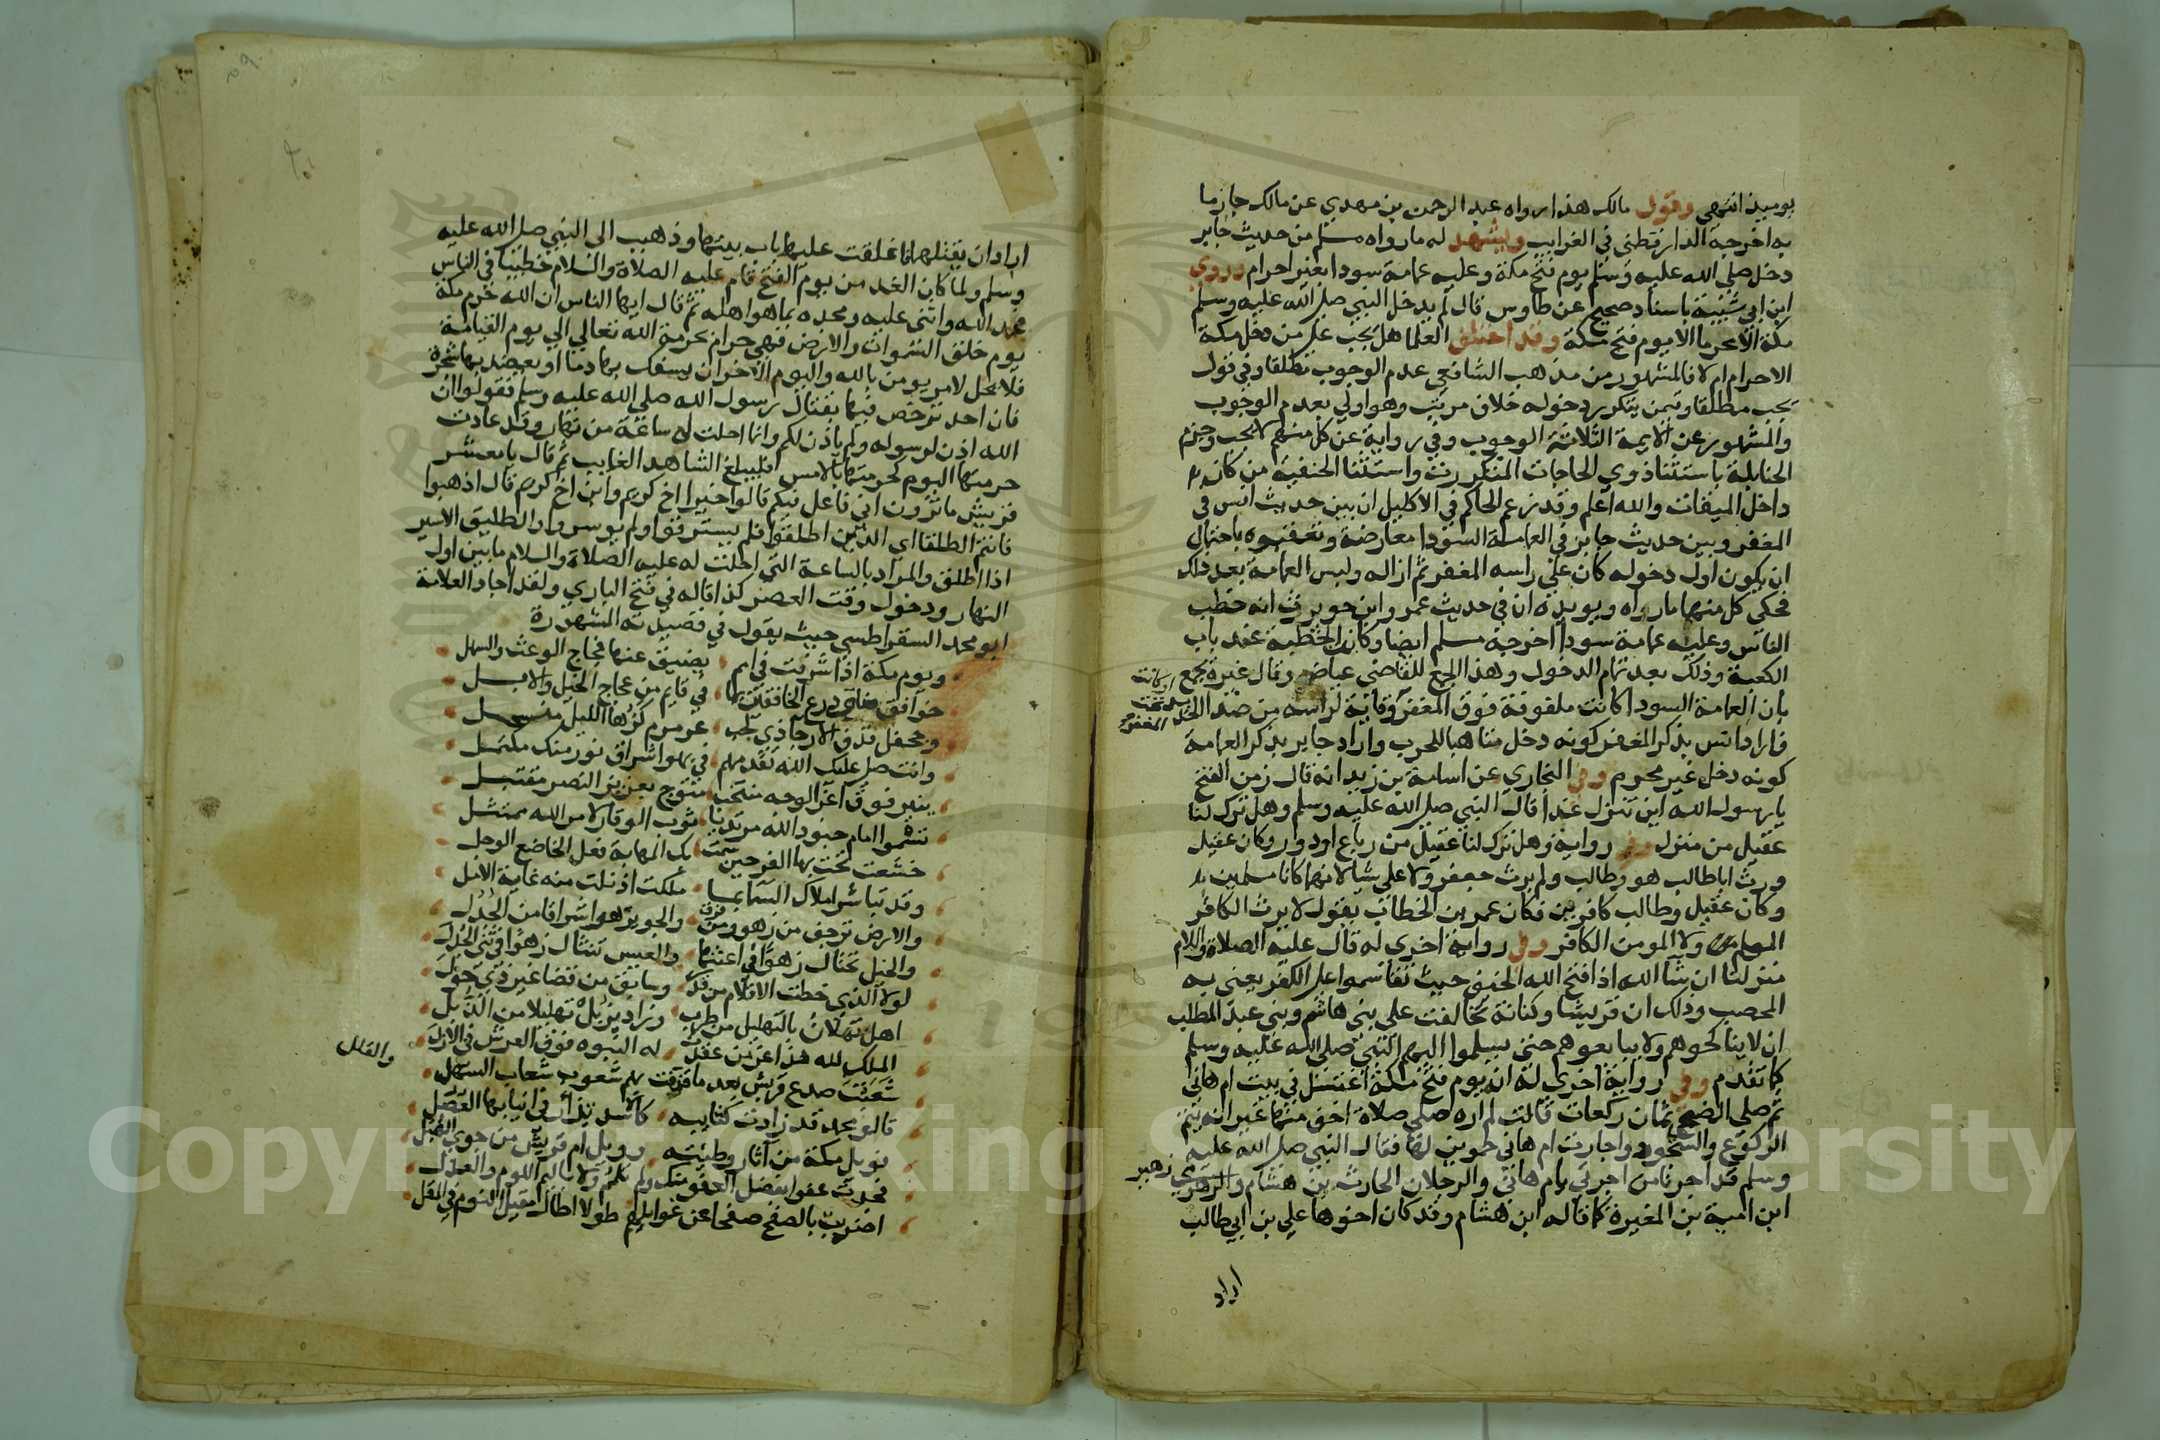 يوميذ انتهي وقول مالك هذا رواه عبد الرحمن بن مهدي عن مالك جازما
به اخرجه الدارقطني في الغرايب ويشهد له ما رواه مسلم من حديث جابر
دخل صلي الله عليه وسلم يوم فتح مكة وعليه عمامة سودا بغير احرام وروي
ابن ابي شيبة باسناد صحيح عن طاوس قال لم يدخل النبي صلي الله عليه وسلم
مكة الا محرما الا يوم فتح مكة وقد اختلف العلما هل يجب علي من دخل مكة
الاحرام ام لا فالمشهور من مذهب الشافعي عدم الوجوب مطلقا وفي قول
يجب مطلقا وفيمن يتكرر دخوله خلاف مرتب وهو اولي بعدم الوجوب
والمشهور عن الايمة الثلاثة الوجوب وفي رواية عن كل منهم لا يجب وجزم
الحنابلة باستثنا ذوي الحاجات المتكررت واستثنا الحنفية من كان
داخل الميقات والله اعلم وقد زعم الحاكم في الاكليل ان بين حديث انس في
المغفر وبين حديث جابر في العمامة السودا معارضة وتعقبوه باحتمال
ان يكون اول دخوله كان علي راسه المغفر ثم ازاله ولبس العمامة بعد ذلك
فحكي كل منهما ما رواه ويويده ان في حديث عمرو ابن حويرث انه خطب
الناس وعليه عمامة سودا اخرجه مسلم ايضا وكانت الخطبة عند باب
الكعبة وذلك بعد تمام الدخول وهذا الجمع للقاضي عياض وقال غيره يجمع
بان العمامة السودا كانت ملفوفة فوق المغفر او كانت تحت المغفر وقاية لراسه من صدا الحديد
فاراد انس بذكر المغفر كونه دخل متاهبا للحرب واراد جابر بذكر العمامة
كونه دخل غير محرم وفي البخاري عن اسامة بن زيد انه قال زمن الفتح
يا رسول الله اين تنزل غدا قال النبي صلي الله عليه وسلم وهل ترك لنا
عقيل من منزل وفي رواية وهل ترك لنا عقيل من رباع او دور وكان عقيل
ورث ابا طالب هو وطالب ولم يرث جعفر ولا علي شيا لانهما كانا مسلمين
وكان عقيل وطالب كافرين فكان عمر بن الخطاب يقول لا يرث الكافر
المسلم ولا المومن الكافر وفي رواية اخري له قال عليه الصلاة والسلام
منزلنا ان شا الله اذا فتح الله الخيف حيث تقاسموا علي الكفر يعني به
المحصب وذلك ان قريشا وكنانة تحالفت علي بني هاشم وبني عبد المطلب
ان لا يناكحوهم ولا يبايعوهم حتي يسلموا اليهم النبي صلي الله عليه وسلم
كما تقدم وفي رواية اخري له انه يوم فتح مكة اغتسل في بيت ام هاني
ثم صلي الضحي ثمان ركعات قالت لم اره صلي صلاة اخف منها غير انه يتم
الركوع والسجود واجارت ام هاني حموين لها فقال النبي صلي الله عليه
وسلم قد اجرنا من اجرت يا ام هاني والرجلان الحارث بن هشام وزهير
ابن امية بن المغيرة كما قاله ابن هشام وقد كان اخوها علي بن ابي طالب
اراد
اراد ان يقتلهما فاغلقت عليهما باب بيتها وذهبت الي النبي صلي الله عليه
وسلم ولما كان الغد من يوم الفتح قام عليه الصلاة والسلام خطيبا في الناس
فحمد الله واثني عليه ومجده بما هو اهله ثم قال ايها الناس ان الله حرم مكة
يوم خلق السموات والارض فهي حرام بحرمة الله تعالي الي يوم القيامة
فلا يحل لامر يومن بالله واليوم الاخر ان يسفك بها دما او يعضد بها شجرة
فان احد ترخص فيها بقتال رسول الله صلي الله عليه وسلم فقولوا ان
الله اذن لرسوله ولم ياذن لكم وانما احلت لي ساعة من نهار وقد عادت
حرمتها اليوم كحرمتها بالامس فليبلغ الشاهد الغايب ثم قال يا معشر
قريش ما ترون اني فاعل فيكم قالوا خيرا اخ كريم وابن اخ كريم قال اذهبوا
فانتم الطلقا اي الذين اطلقوا فلم يسترقوا ولم يوسروا والطليق الاسير
اذا اطلق والمراد بالساعة التي احلت له عليه الصلاة والسلام ما بين اول
النهار ودخول وقت العصر كذا قاله في فتح الباري ولقد اجاد العلامة
ابو محمد السقراطسي حيث يقول في قصيدته المشهورة
ويوم مكة اذ اشرفت في امم يضيق عنها فجاج الوعث والسهل
خوافق ضاق ذرع الخافقين بها في قايم من عجاج الخيل والابل
وجحفل قذف الارجا ذي لجب عرمرم كزهاء الليل منسحل
وانت صلي عليك الله تقدمهم في بهو اشراق نور منك مكتمل
ينير فوق اغر الوجه منتجب متوج بعزيز النصر مقتبل
تسموا امام جنود الله مرتديا ثوب الوقار لامر الله ممتثل
خشعت تحت بها العز حين سمت بك المهابة فعل الخاضع الوجل
وقد تباشر املاك السما بما ملكت اذ نلت منه غاية الامل
والارض ترجف من زهو ومن فرق والجو يزهو اشراقا من الجذل
والخيل تختال زهوا في اعنتها والعيس تنثال زهوا في ثني الجدل
لولا الذي خطت الاقلام من قدر وسابق من قضا غير ذي حول
اهل ثهلان بالتهليل من طرب وذاب يذبل تهليلا من الذبل
الملك لله هذا عز من عقدت له النبوه فوق العرش في الازل
شعبت صدع قريش بعد ما قذفت بهم شعوب شعاب السهل والقلل
قالوا محمد قد زادت كتايبه كالاسد تزأر في انيابها العصل
فويل مكة من آثار وطئته وويل ام قريش من جوي الهبل
فجدت عفوا بفضل العفو منك ولم تلمم ولا باليم اللوم والعذل
اضربت بالصفح صفحا عن غوايلهم طولا اطال مقيل النوم في المقل